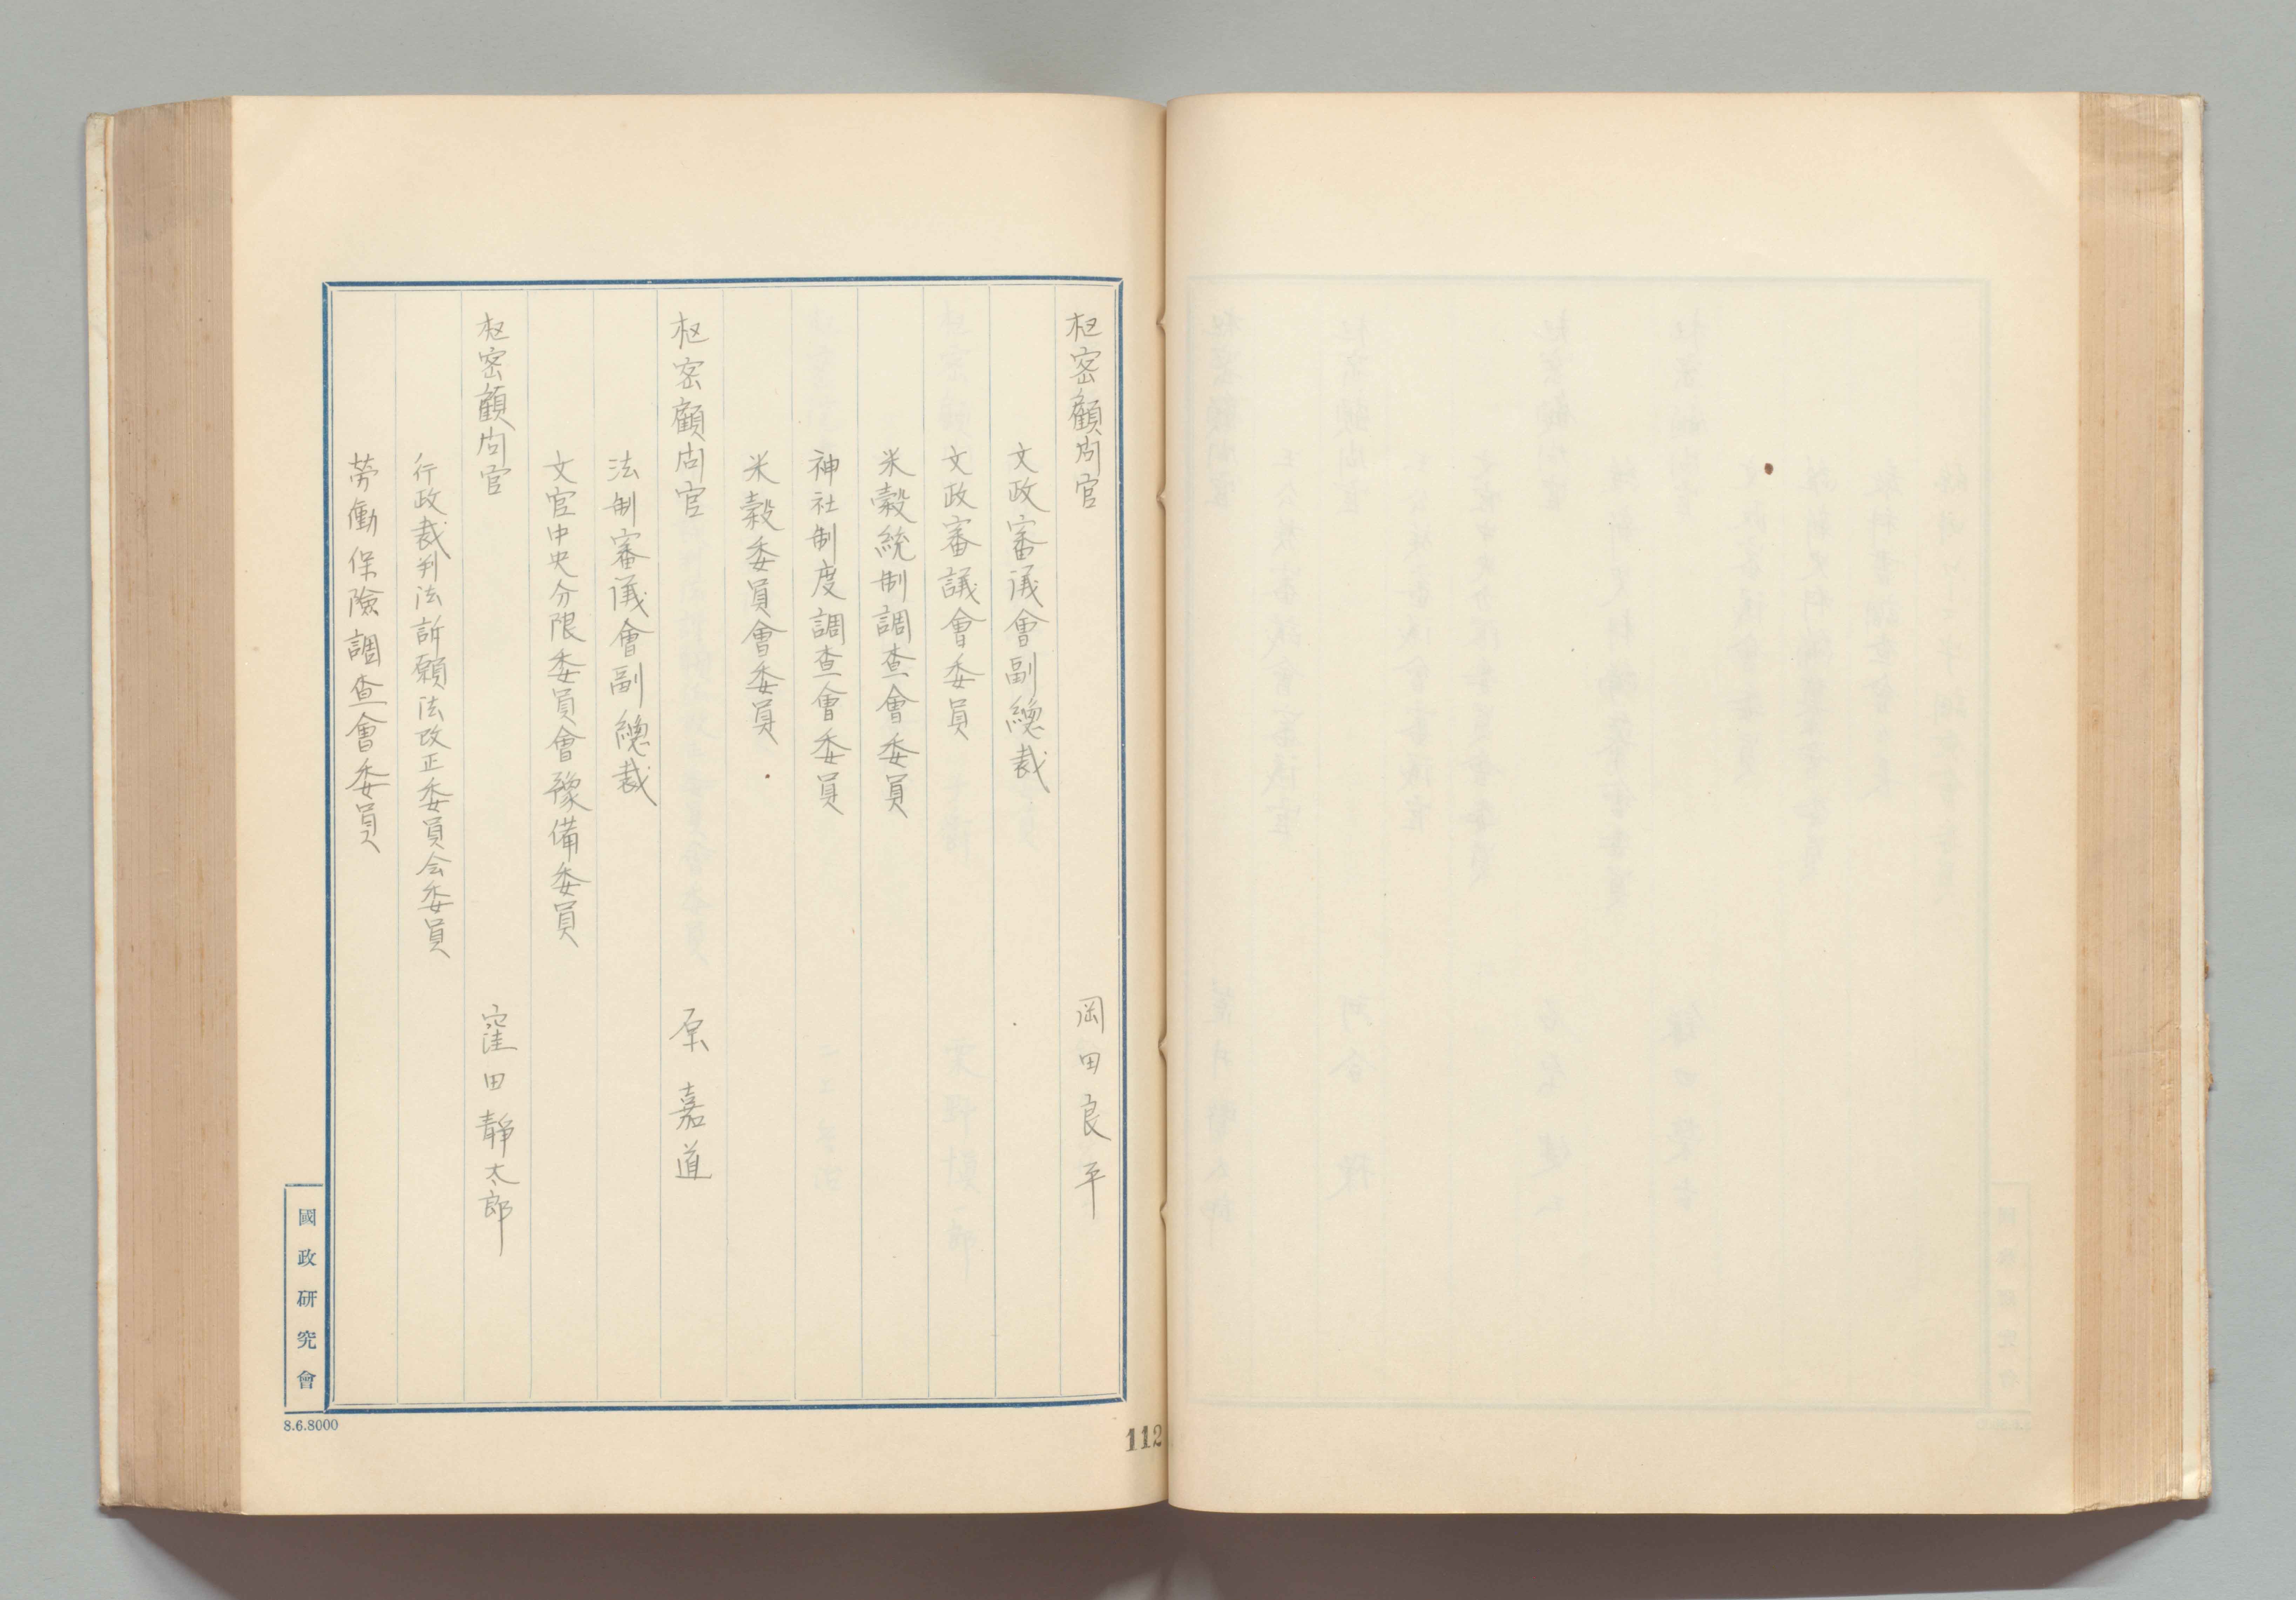 枢密顧问官　岡田良平
文政審議會副總裁
文政審議會委員
米穀統制調査會委員
神社制度調査會委員
米穀委員會委員
枢密顧问官　原嘉道
法制審議會副總裁
文官中央分限委員會豫備委員
枢密顧问官　窪田靜太郎
行政裁判法訴願法改正委員会委員
勞働保險調査會委員
國政研究會
8.6.8000
112